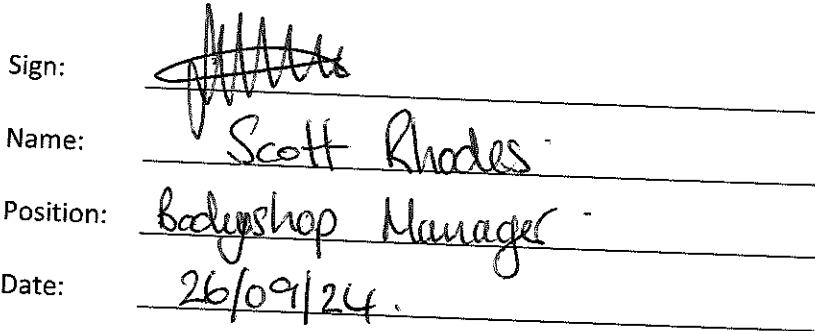 Sign:
Name: Scott Rhodes
Position: Bodyshop Manager
Date: 26/09/24.